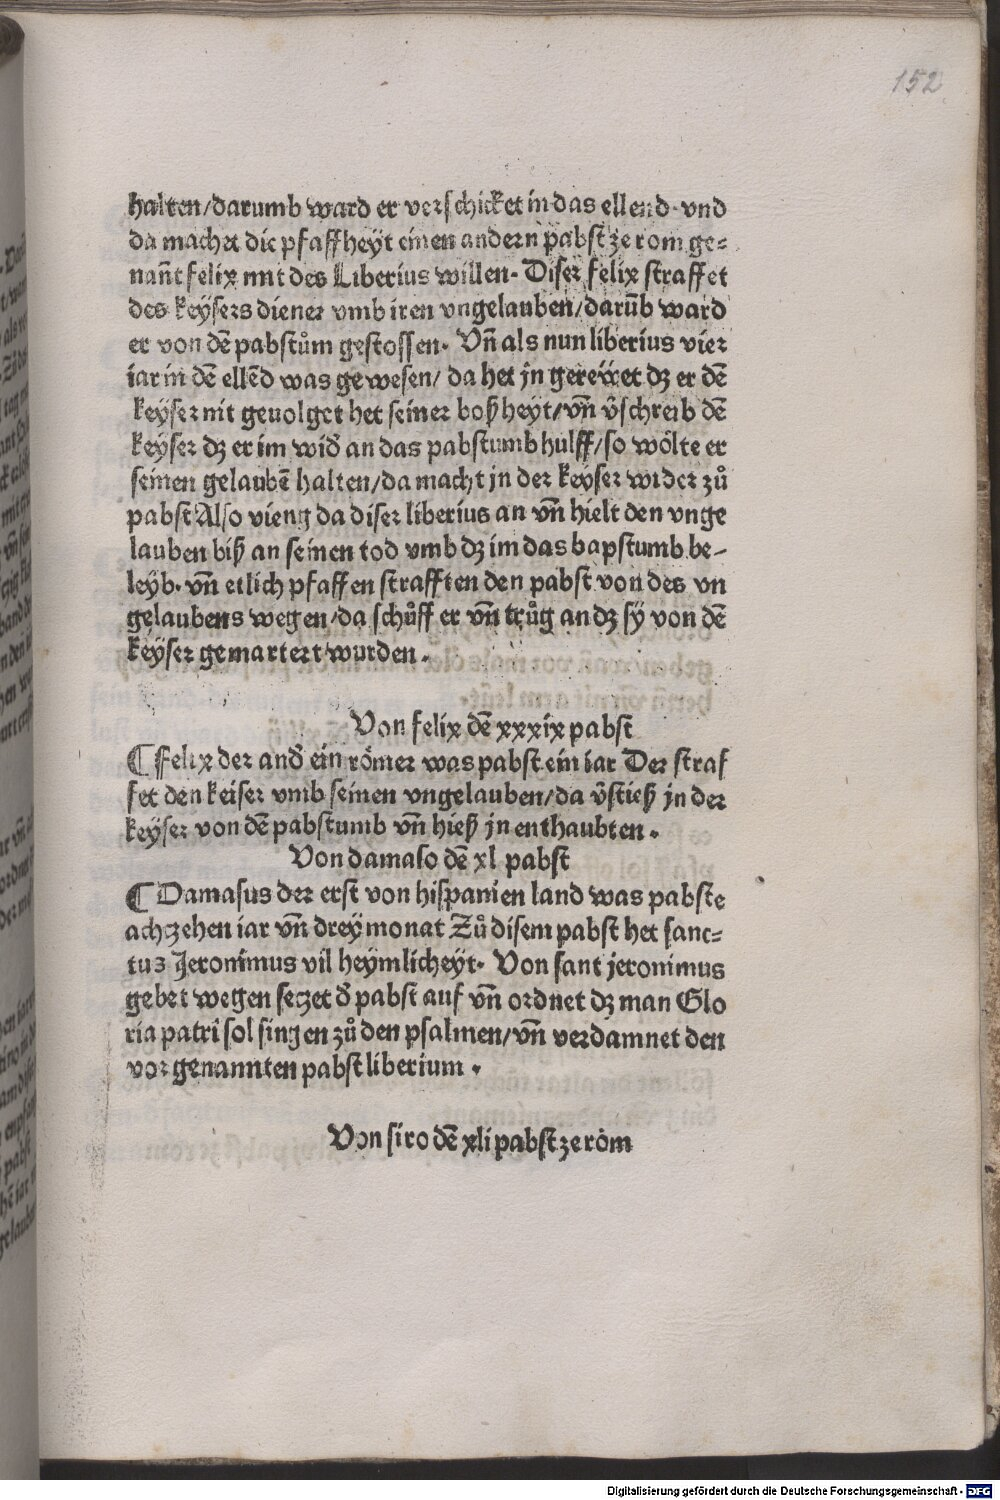 152
halten/darumb ward er verschicket in das ellend· vnd
da machet die pfaffheyt einen andern pabst ze rom ge⸗
nañt felix mit des Liberius willen· Diser felix straffet
des keÿsers diener vmb iren vngelauben/darũb ward
er von dẽ pabstům gestossen· Vñ als nun liberius vier
iar in dẽ ellẽd was gewesen/ da het jn gerewet dz er dẽ
keÿser nit geuolget het seiner boßheyt/vñ v̄schreib dẽ
keÿser dz er im wid̄ an das pabstumb hulff/so wölte er
seinen gelaubẽ halten/da macht jn der keÿser wider zů
pabst Also vieng da diser liberius an vñ hielt den vnge
lauben biß an seinen tod vmb dz im das bapstumb be⸗
leÿb· vñ etlich pfaffen strafften den pabst von des vn
gelaubens wegen/da schůff er vñ trůg an dz sÿ von dẽ
keÿser gemartert wurden·
Von felix dẽ xxxix pabst
¶ Felix der and̄ ein römer was pabst ein iar Der straf
fet den keiser vmb seinen vngelauben/da v̄stieß jn der
keÿser von dẽ pabstumb vñ hieß jn enthaubten·
Von damaso dẽ xl pabst
¶ Damasus der erst von hispanien land was pabste
achzehen iar vñ dreÿ monat Zů disem pabst het sanc⸗
tus Jeronimus vil heymlicheyt· Von sant jeronimus
gebet wegen seczet d̄ pabst auf vñ ordnet dz man Glo
ria patri sol singen zů den psalmen/vñ verdamnet den
vorgenannten pabst liberium·
Von siro dẽ xli pabst ze röm
Digitalisierung gefördert durch die Deutsche Forschungsgemeinschaft - DFG